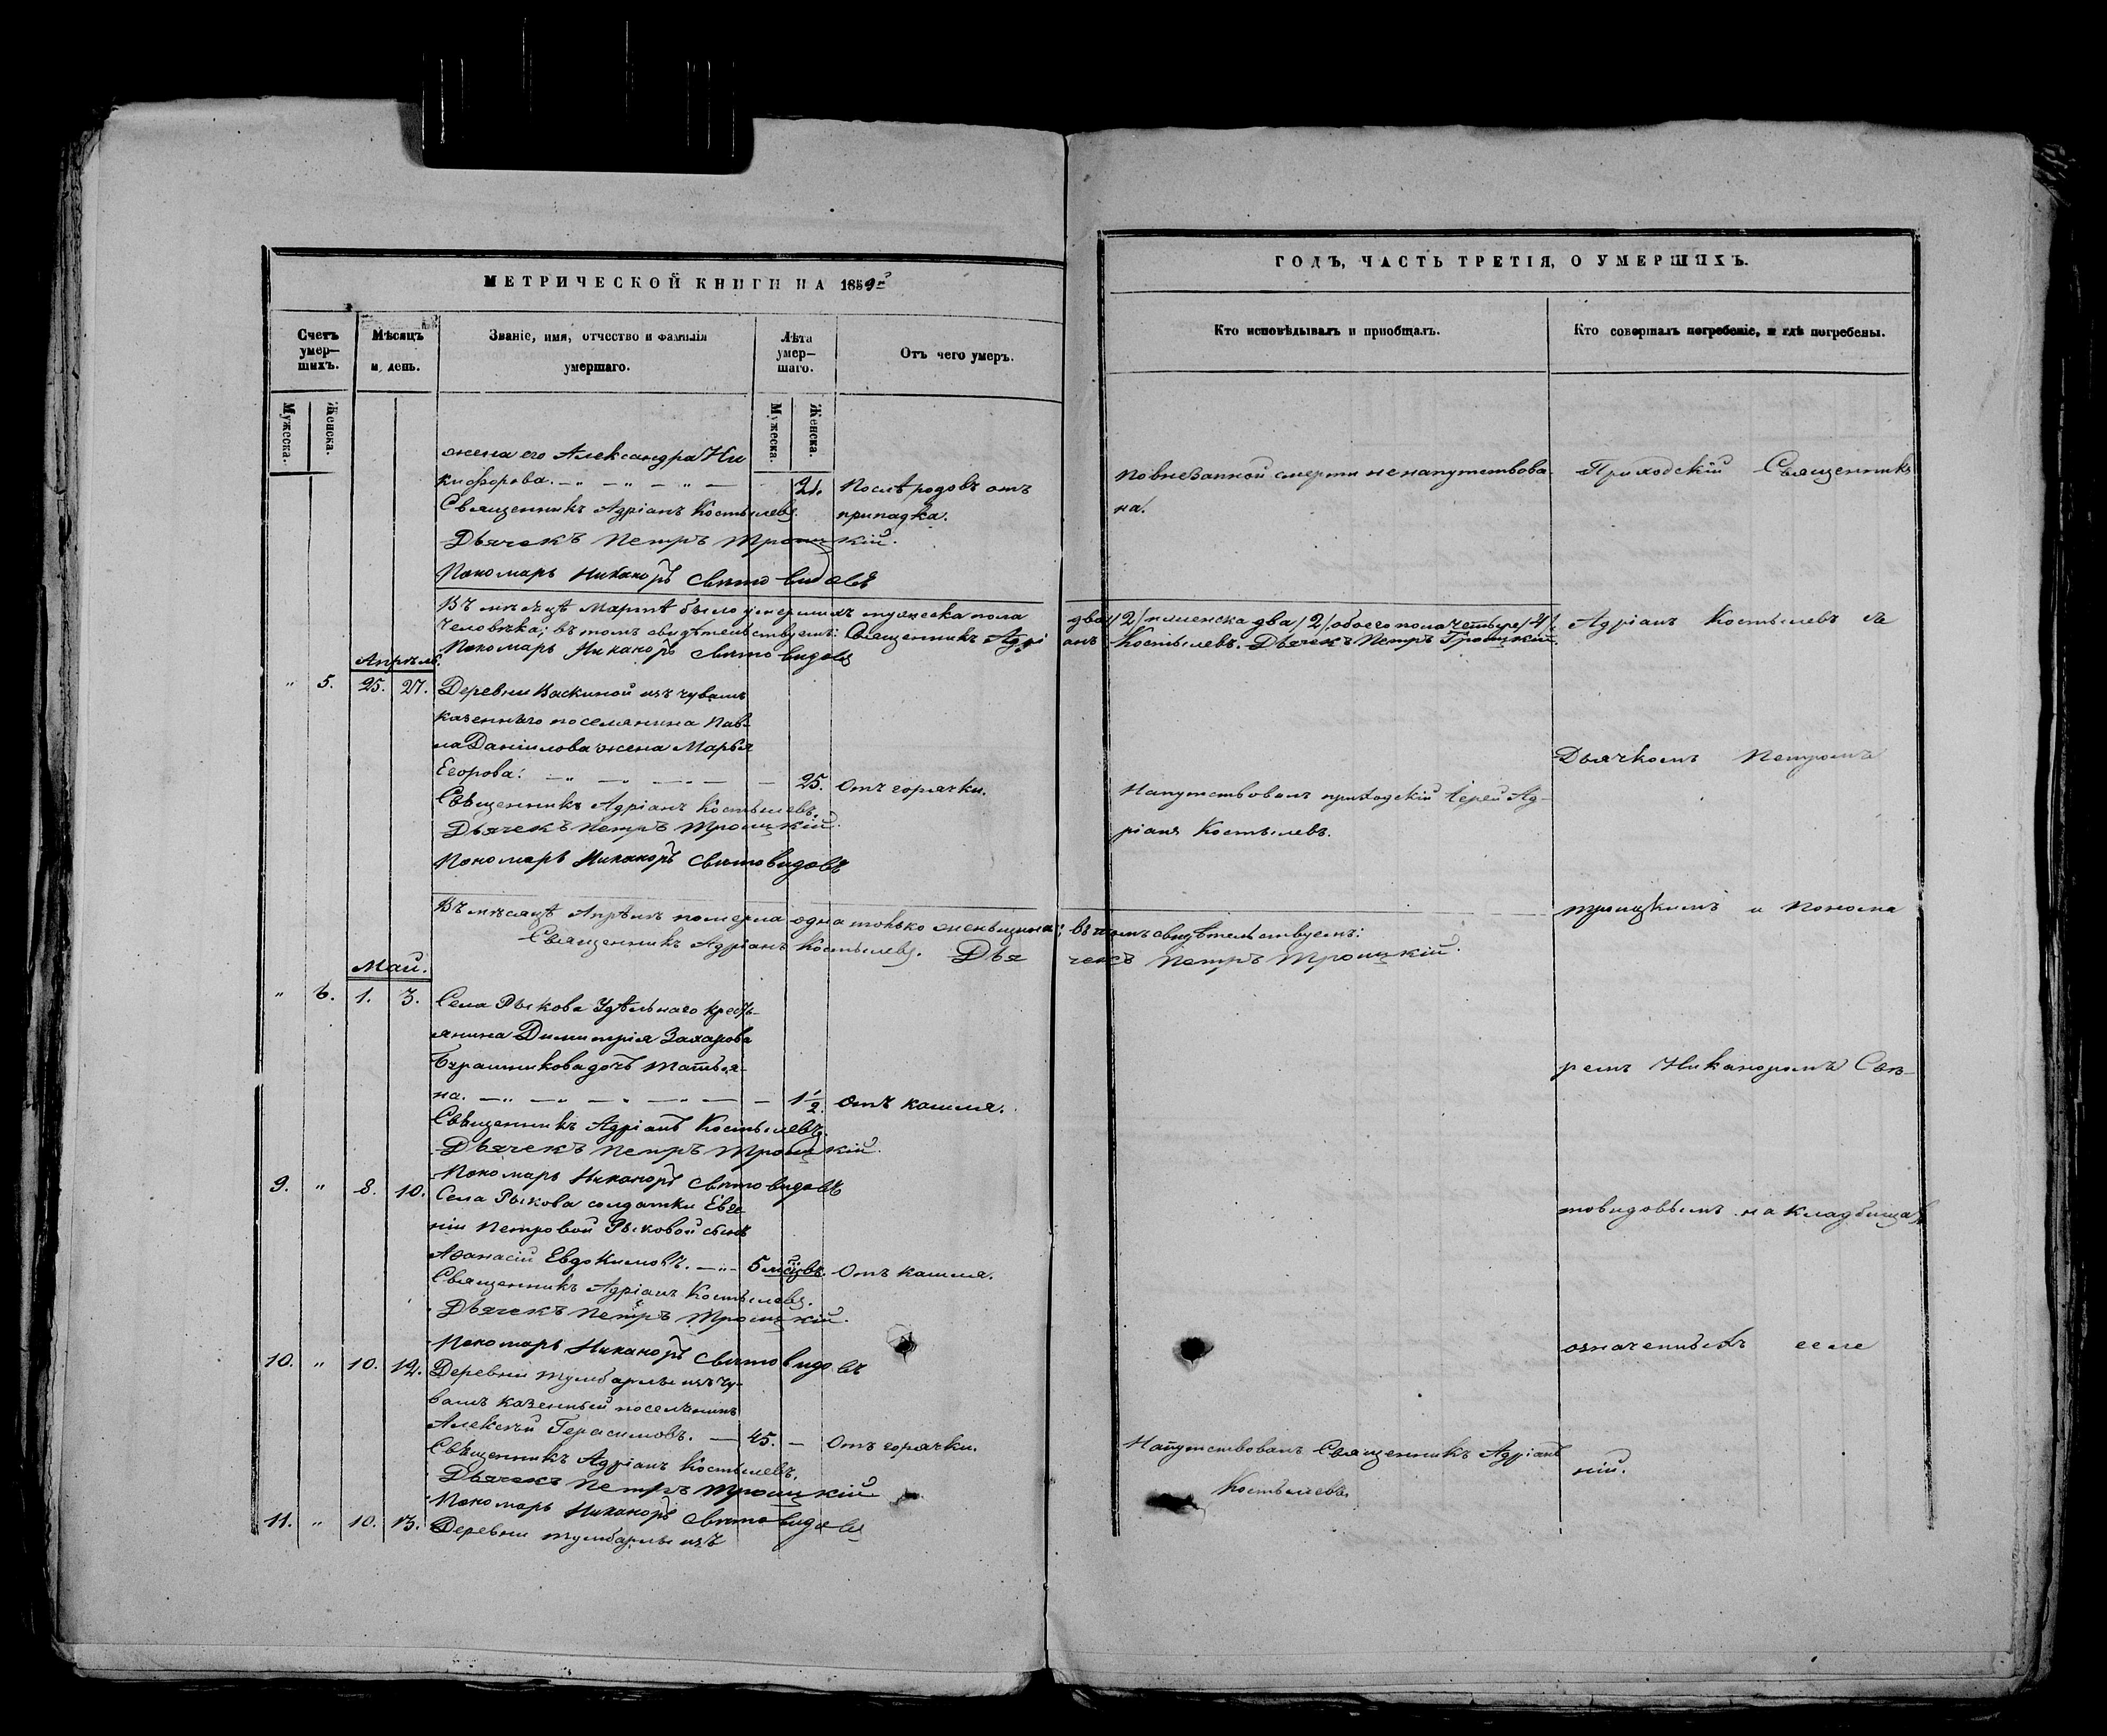 МЕТРИЧЕСКОЙ КНИГИ НА 1859й
Счетъ умер—шихъ.
Мѣсяцъ и день.
Званіе, имя, отчество и фамилія умершаго.
Лѣта умер—шаго.
Отъ чего умеръ.
Мужеска.
Женска.
Мужеска.
Женска.
жена его Александра Ни
кифорова. 21. Послѣ родовъ отъ
Священникъ Адріанъ Костылевъ. припадка.
Дьячекъ Петръ Троицкій.
Пономарь Никаноръ Святовидовъ
Въ мѣсяцѣ Мартѣ было умершихъ мужеска пола
человѣка; въ томъ свидѣтельствуемъ: Священникъ Адрі
Пономарь Никаноръ Святовидовъ
Апрѣль.
" 5. 25. 27. Деревни Васкиной изъ чувашъ
казеннаго поселянина Пав-
ла Даніилова жена Марья
Егорова. 25. Отъ горячки.
Священникъ Адріанъ Костылевъ.
Дьячекъ Петръ Троицкій.
Пономарь Никаноръ Святовидовъ
Въ мѣсяцѣ Апрѣлѣ померла одна только женьщина;
Священникъ Адріанъ Костылевъ. Дья
Май.
" 6. 1. 3. Села Рыкова Удѣльнаго кресть-
янина Димитрія Захарова
дочь Татья-
на. 1 1/2. Отъ кашля.
Священникъ Адріанъ Костылевъ.
Дьячекъ Петръ Троицкій.
Пономарь Никаноръ Святовидовъ
9. " 8. 10. Села Рыкова солдатки Евге
ніи Петровой Рыковой сынъ
Аѳанасій Евдокимовъ. 5 мѣсцвъ. Отъ кашля.
Священникъ Адріанъ Костылевъ.
Дьячекъ Петръ Троицкій.
Пономарь Никаноръ Святовидовъ
10. " 10. 12. Деревни Тумбарлы изъ чу-
вашъ казенный поселянинъ
Алексѣй Герасимовъ. 45. Отъ горячки.
Священникъ Адріанъ Костылевъ.
Дьячекъ Петръ Троицкій
Пономарь Никаноръ Святовидовъ
11. " 10. 13. Деревни Тумбарлы изъ
ГОДЪ, ЧАСТЬ ТРЕТІЯ, О УМЕРШИХЪ.
Кто исповѣдывалъ и пріобщалъ.
Кто совершалъ погребеніе, и гдѣ погребены.
По внезапной смерти не напутствова-
на.
два /2/ и женска два /2/, обоего пола четыре /4/.
анъ Костылевъ. Дьячекъ Петръ Троицкій.
Напутствовалъ приходскій Іерей Ад-
ріанъ Костылевъ.
въ томъ свидѣтельствуемъ:
чекъ Петръ Троицкій.
Напутствовалъ Священникъ Адріанъ
Костылевъ.
Приходскій Священникъ
Адріанъ Костылевъ съ
Дьячкомъ Петромъ
Троицкимъ и Понома
ремъ Никаноромъ Свя-
товидовымъ на кладбищахъ
означенныхъ селе
ній.